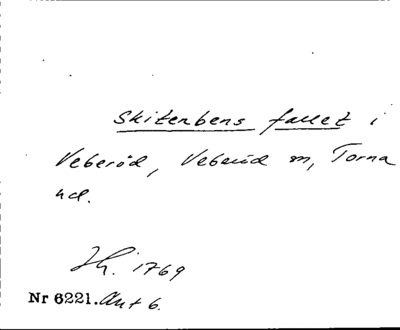 Skitenbens fallet i
Veberöd, Veberöd sn, Torna
hd.
Jh. 1769
Nr 6221. Akt 6.